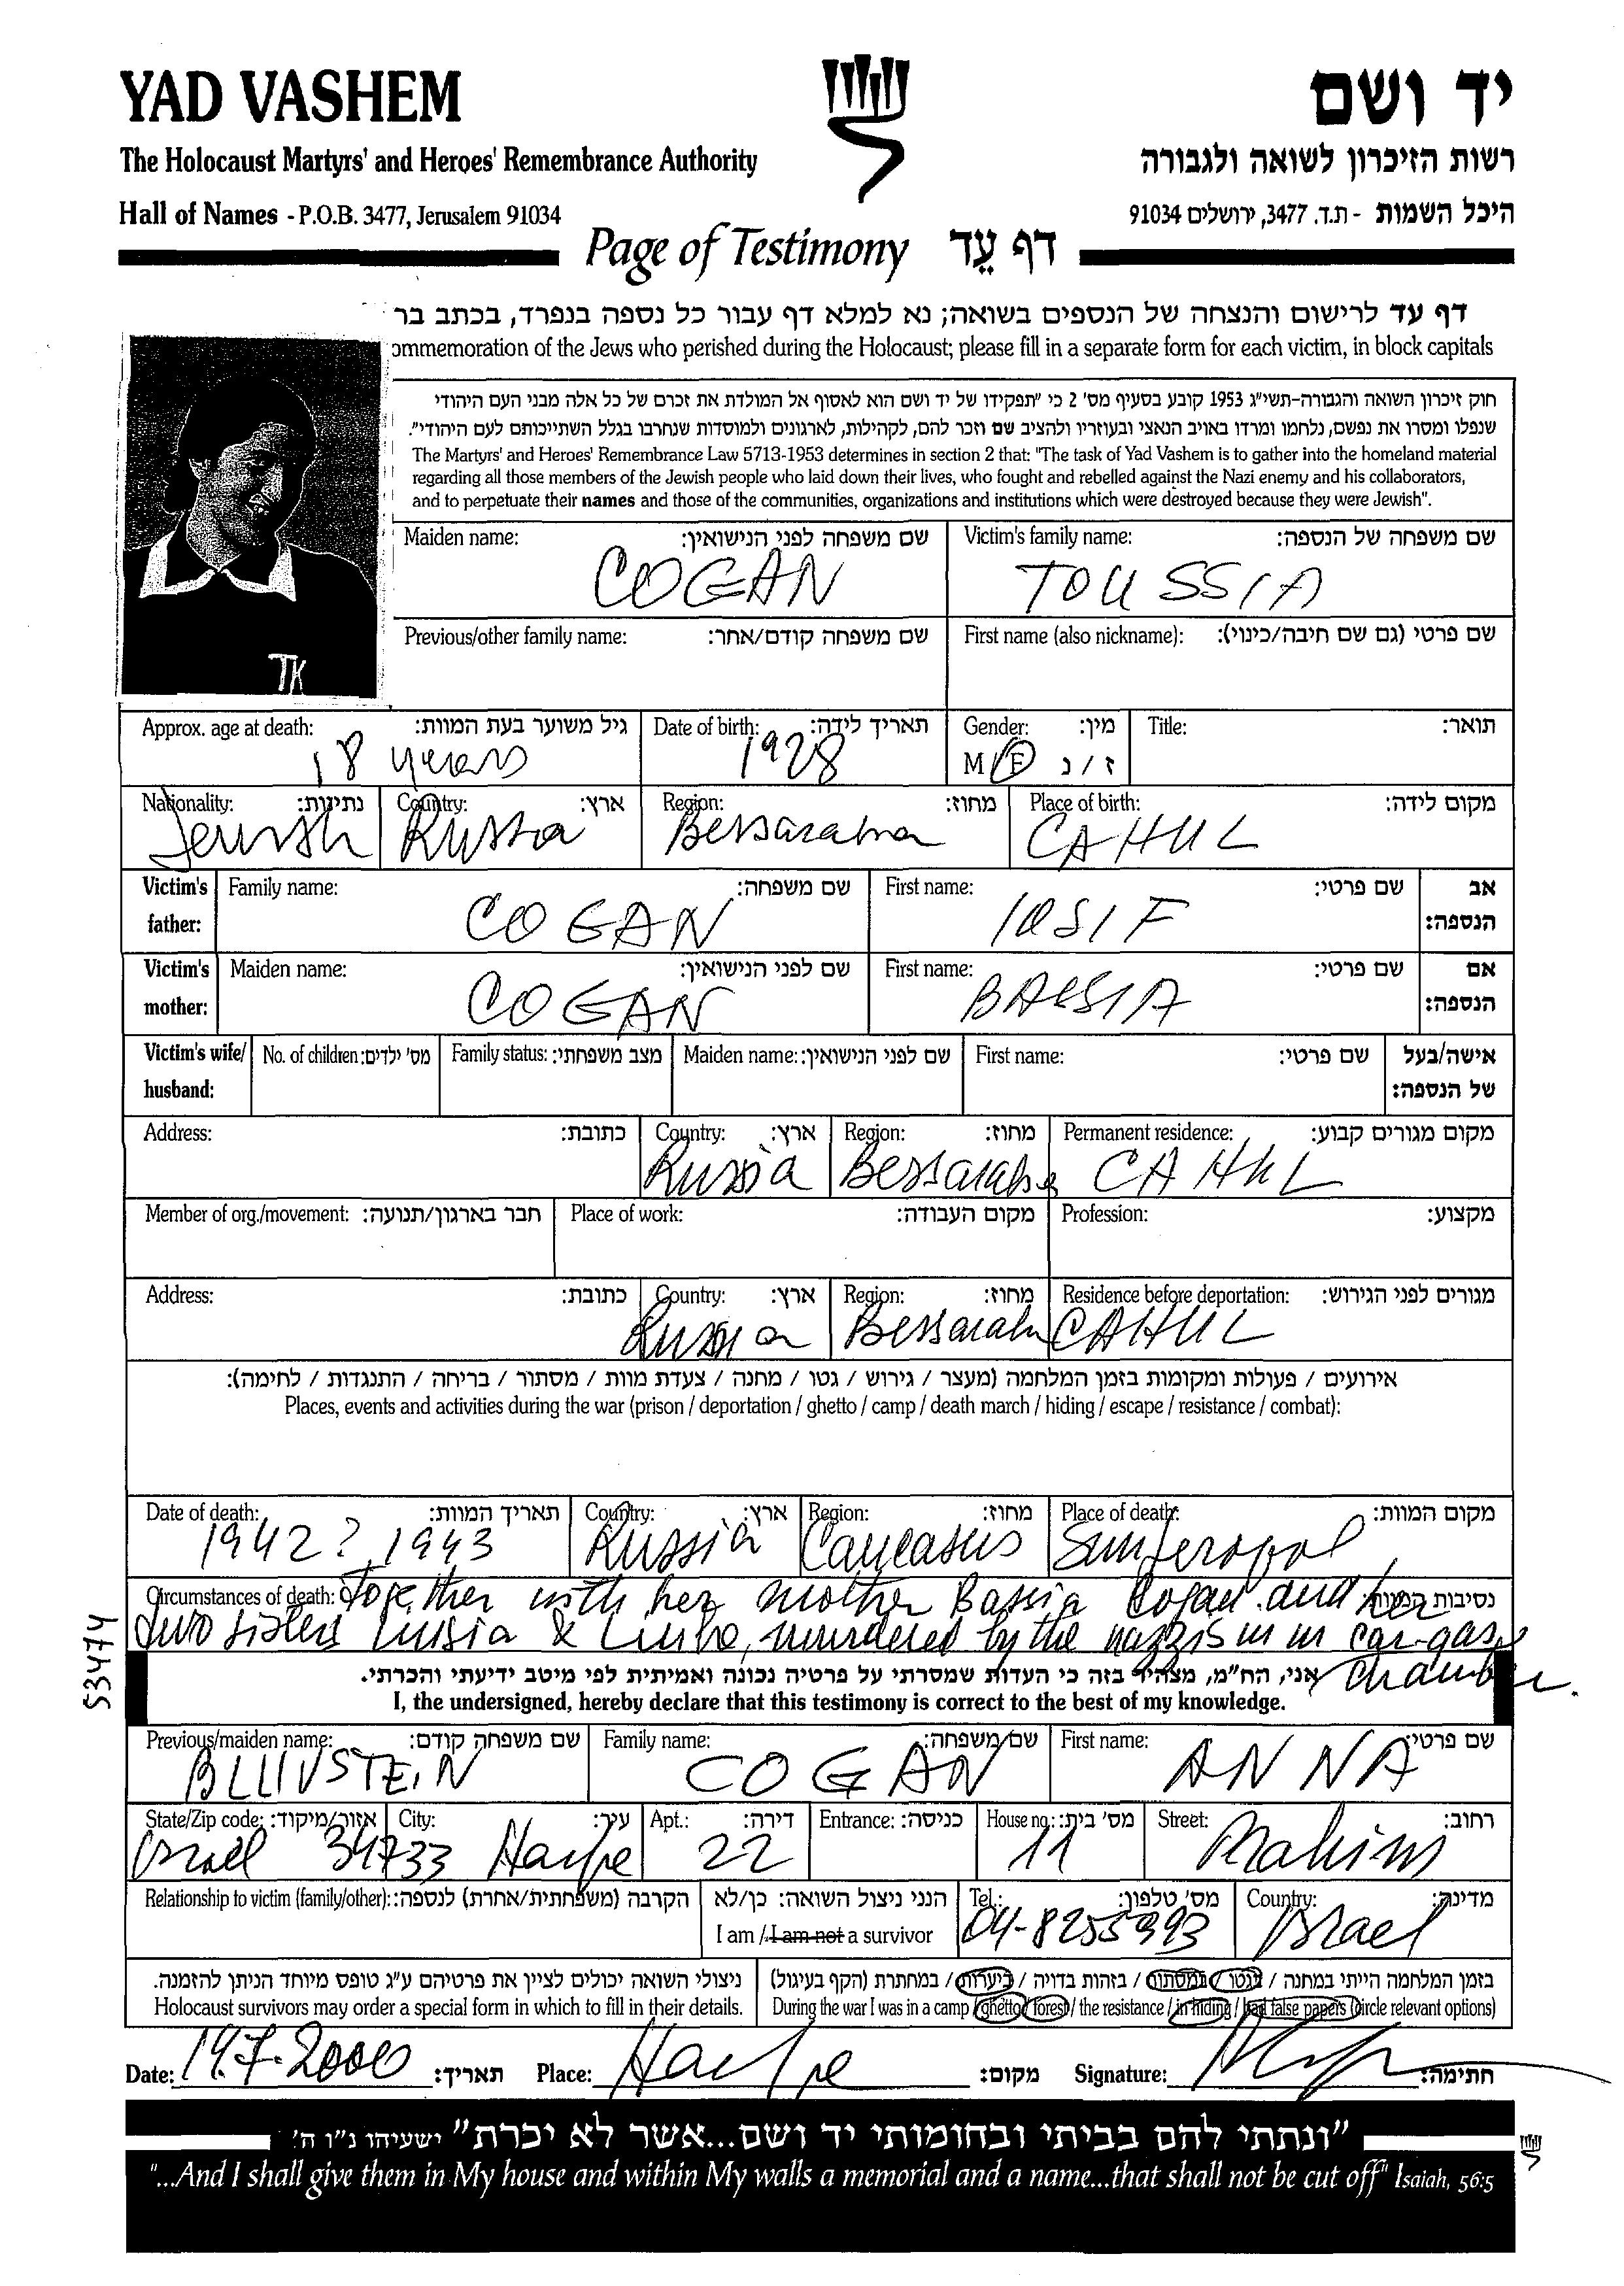 YAD VASHEM
יד ושם
The Holocaust Martyrs' and Heroes' Remembrance Authority
רשות הזיכרון לשואה ולגבורה
Hall of Names - P.O.B. 3477, Jerusalem 91034
היכל השמות - ת.ד. 3477, ירושלים 91034
Page of Testimony דף עֵד
דף עד לרישום והנצחה של הנספים בשואה; נא למלא דף עבור כל נספה בנפרד, בכתב בר
ommemoration of the Jews who perished during the Holocaust; please fill in a separate form for each victim, in block capitals
חוק זיכרון השואה והגבורה-תשי"ג 1953 קובע בסעיף מס' 2 כי "תפקידו של יד ושם הוא לאסוף אל המולדת את זכרם של כל אלה מבני העם היהודי
שנפלו ומסרו את נפשם, נלחמו ומרדו באויב הנאצי ובעוזריו ולהציב שם וזכר להם, לקהילות, לארגונים ולמוסדות שנחרבו בגלל השתייכותם לעם היהודי".
The Martyrs' and Heroes' Remembrance Law 5713-1953 determines in section 2 that: "The task of Yad Vashem is to gather into the homeland material
regarding all those members of the Jewish people who laid down their lives, who fought and rebelled against the Nazi enemy and his collaborators,
and to perpetuate their names and those of the communities, organizations and institutions which were destroyed because they were Jewish".
TK
Maiden name: שם משפחה לפני הנישואין: Victim's family name: שם משפחה של הנספה:
COGAN TOUSSIA
Previous/other family name: שם משפחה קודם/אחר: First name (also nickname): שם פרטי (גם שם חיבה/כינוי):
Approx. age at death: גיל משוער בעת המוות: Date of birth: תאריך לידה: Gender: מין: Title: תואר:
18 years 1928 M/F ז/נ
Nationality: נתינות: Country: ארץ: Region: מחוז: Place of birth: מקום לידה:
Jewish Russia Bessarabia CAHUL
Victim's father: Family name: שם משפחה: First name: שם פרטי: אב הנספה:
COGAN IOSIF
Victim's mother: Maiden name: שם לפני הנישואין: First name: שם פרטי: אם הנספה:
COGAN
Victim's wife/husband: No. of children: מס' ילדים: Family status: מצב משפחתי: Maiden name: שם לפני הנישואין: First name: שם פרטי: אישה/בעל של הנספה:
Address: כתובת: Country: ארץ: Region: מחוז: Permanent residence: מקום מגורים קבוע:
Russia Bessarabia CAHUL
Member of org./movement: חבר בארגון/תנועה: Place of work: מקום העבודה: Profession: מקצוע:
Address: כתובת: Country: ארץ: Region: מחוז: Residence before deportation: מגורים לפני הגירוש:
Russia Bessarabia CAHUL
אירועים / פעולות ומקומות בזמן המלחמה (מעצר / גירוש / גטו / מחנה / צעדת מוות / מסתור / בריחה / התנגדות / לחימה):
Places, events and activities during the war (prison / deportation / ghetto / camp / death march / hiding / escape / resistance / combat):
Date of death: תאריך המוות: Country: ארץ: Region: מחוז: Place of death: מקום המוות:
1942? 1943 Russia Caucasus Simferopol
Circumstances of death: נסיבות המוות: Together with her mother Bassia Cogan and her
two sisters & murdered by the nazzis in car-gas
chamber.
53474
אני, הח"מ, מצהיר בזה כי העדות שמסרתי על פרטיה נכונה ואמיתית לפי מיטב ידיעתי והכרתי.
I, the undersigned, hereby declare that this testimony is correct to the best of my knowledge.
Previous/maiden name: שם משפחה קודם: Family name: שם משפחה: First name: שם פרטי:
COGAN ANNA
State/Zip code: אזור/מיקוד: City: עיר: Apt.: דירה: Entrance: כניסה: House no.: מס' בית: Street: רחוב:
Israel 34733 22 11
Relationship to victim (family/other): הקרבה (משפחתית/אחרת) לנספה: הנני ניצול השואה: כן/לא Tel.: מס' טלפון: Country: מדינה:
I am / I am not a survivor 04-8255393 Israel
ניצולי השואה יכולים לציין את פרטיהם ע"ג טופס מיוחד הניתן להזמנה. בזמן המלחמה הייתי במחנה / בגטו / במסתור / בזהות בדויה / ביערות / במחתרת (הקף בעיגול)
Holocaust survivors may order a special form in which to fill in their details. During the war I was in a camp / ghetto / forest / the resistance / in hiding / had false papers (circle relevant options)
Date: 19.7.2000 תאריך: Place: מקום: Signature: חתימה:
"ונתתי להם בביתי ובחומותי יד ושם...אשר לא יכרת" ישעיהו נ"ו ה'
"...And I shall give them in My house and within My walls a memorial and a name...that shall not be cut off" Isaiah, 56:5